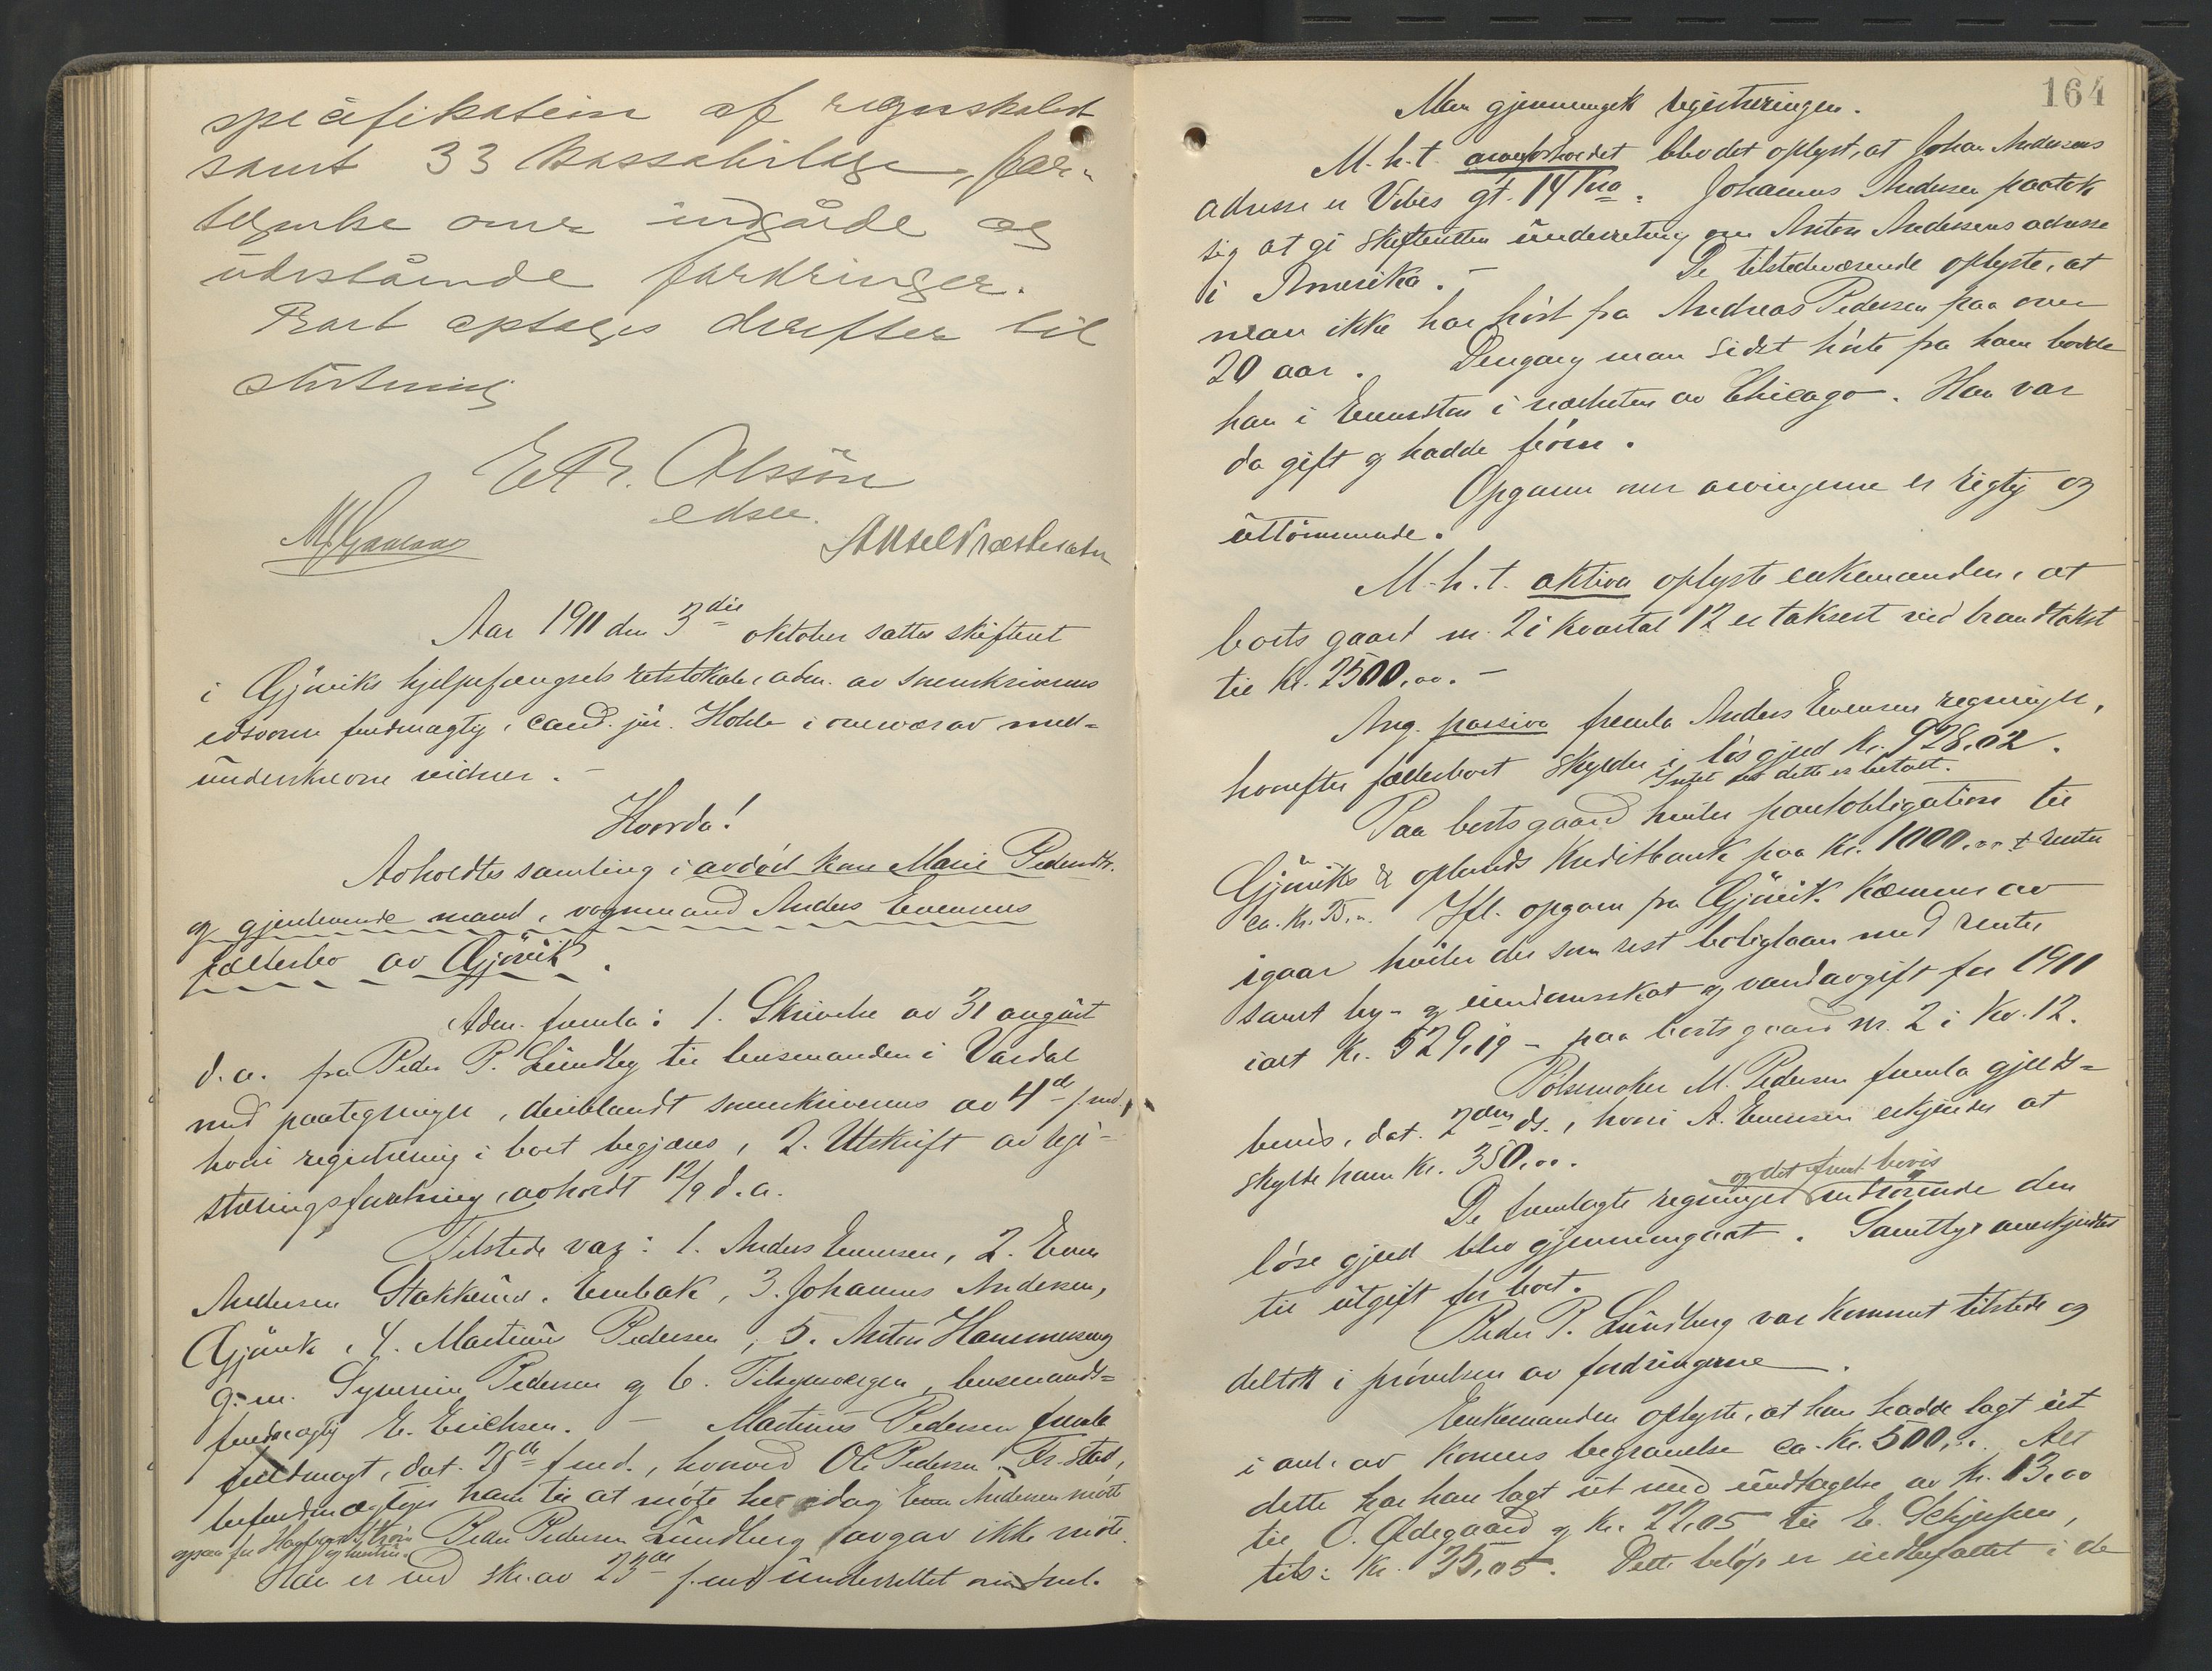 specifikation af regnskabet
samt 33 Kassabilage, for-
tegnelse over indgåede og
udestående fordringer.
Boet optages derefter til
slutning
E. Olssön
edsv.
Aar 1911 den 3die oktober sattes skifteret
i Gjøviks hjelpefængsels retslokale, adm. av sorenskriverens
edsvorne fuldmægtig, cand. jur. Holde i overvær av med-
underskrevne vidner. -
Hvorda!
Avholdtes samling i avdød kone Marie Pedersdtr.
og gjenlevende mand, vognmand Anders Evensens
fællesbo av Gjøvik.
Adm. fremla: 1. Skrivelse av 31 august
d.a. fra Peder P. Lundberg til lensmanden i Vardal
med paategninger, deriblandt sorenskriverens av 4de f.md.,
hvori registrering i boet begjæres, 2. Utskrift av regi-
streringsforretning, avholdt 12/9 d.a.
Tilstede var: 1. Anders Evensen, 2. Even
Andersen Stokkelund, 3. Johannes Andersen,
Gjøvik, 4. Martinus Pedersen, 5. Anton Hammerseng
g.m. Syverine Pedersen og 6. Tilsynsværgen, lensmands-
fuldmægtig E. Erichsen. - Martinus Pedersen fremla
fuldmagt, dat. 28de f.md., hvorved Ole Pedersen, Fr.stad,
befuldmægtiger ham til at møte her idag Even Andersen møtte
ogsaa for Hagbart Strøm og hustru. Peder Pedersen Lundberg avgav ikke møte.
Han er ved skr. av 23de f.md underrettet om
164
Man gjennemgik registreringen.
M.h.t. arveforholdet blev det oplyst, at Johan Andersens
adresse er Vibes gt. 14 Kra. Johannes Andersen paatok
sig at gi skifteretten underretning om Anton Andersens adresse
i Amerika. - De tilstedeværende oplyste, at
man ikke har hørt fra Andreas Pedersen paa over
20 aar. Dengang man sidst hørte fra ham bodde
han i Evanston i nærheten av Chicago. Han var
da gift og hadde børn.
Opgaven over arvingerne er rigtig og
uttømmende.
M.h.t. aktiva oplyste enkemanden, at
boets gaard nr. 2 i kvartal 12 er taksert ved brandtakst
til kr. 2500,00. -
Ang. passiva fremla Anders Evensen regninger,
hvorefter fællesboet skylder i løs gjæld kr. 928,02.
Intet av dette er betalt.
Paa boets gaard hviler pantobligation til
Gjøviks & oplands Kreditbank paa kr. 1000,00 + renter
ca. kr. 25,-. Ifl. opgave fra Gjøvik Kæmner av
igaar hviler der som rest boliglaan med renter
samt by- og eiendomsskat og vandavgift for 1911
ialt kr. 529,19 - paa boets gaard nr. 2 i Kv. 12.
Pølsemaker M. Pedersen fremla gjælds-
bevis, dat. 2den ds., hvori A. Evensen erkjender at
skylde ham kr. 350,00.
og det freml. bevis
De fremlagte regninger vedrørende den
løse gjæld blev gjennemgaat. Samtlige anerkjendtes
til utgift for boet.
Peder P. Lundberg var kommet tilstede og
deltok i prøvelsen av fordringerne.
Enkemanden oplyste, at han hadde lagt ut
i anl. av konens begravelse ca. kr. 500,00. Alt
dette har han lagt ut med undtagelse av kr. 13,00
til O. Ødegaard og kr. 22,05 til E. Schjerpen,
tils: kr. 35,05. Dette beløp er indbefattet i de